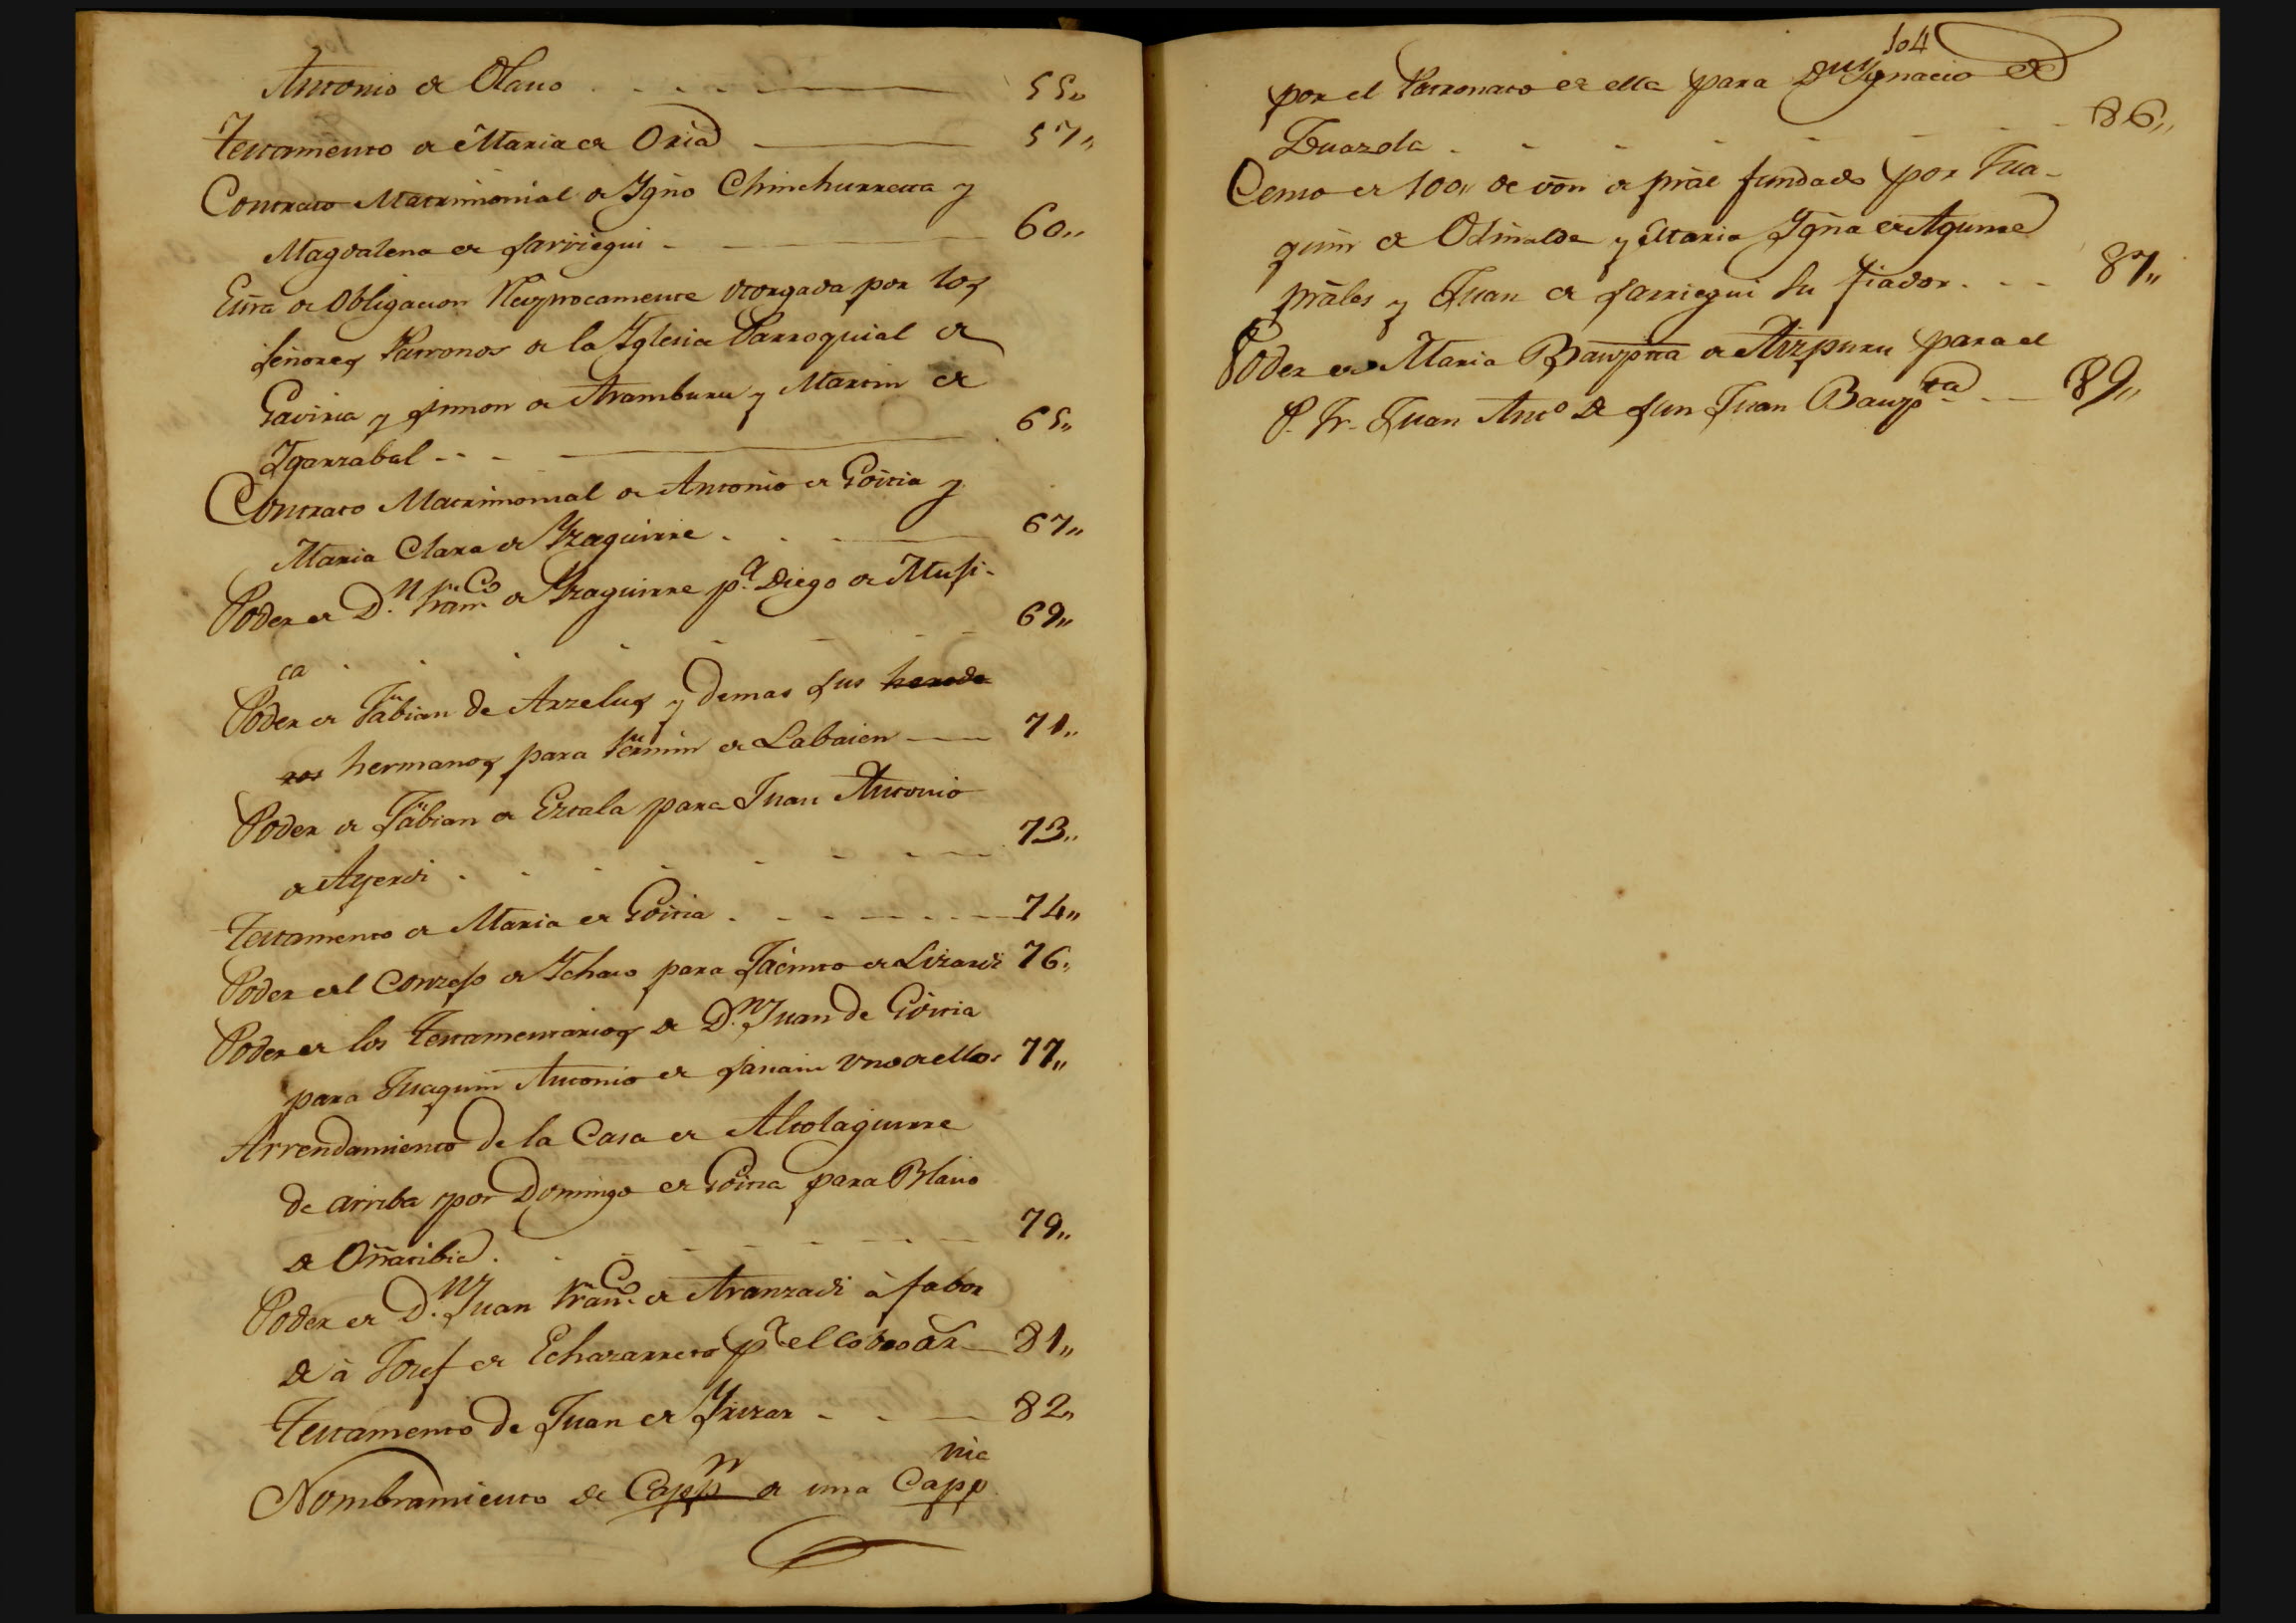 Antonio de Olano . . . . 55,,
Testamento de Maria de Oria 57,,
Contrato Matrimonial de Ygño Chinchurreta y
Magdalena de Sarriegui - 60,,
Essra de Obligacion Reciprocamente otorgada por los
Señores Patronos de la Yglesia Parroquial de
Gaviria y Simon de Aramburu y Martin de
Ygarzabal - - - 65,,
Contrato Matrimonial de Antonio de Goitia y
Maria Clara de Yzaguirre . . . 67,,
Poder de D.n Franco de Yzaguirre p.a Diego de Musi-
ca . . . . . 69,,
Poder de Fabian de Arzelus y demas sus herede
ros hermanos para Fermin de Labaien 71,,
Poder de Fabian de Eztala para Juan Antonio
de Ayerdi . . . . 73,,
Testamento de Maria de Goitia . - - - 74,,
Poder del Conzejo de Ychaso para Jacinto de Lizardi 76,,
Poder de los Testamentarios de D.n Juan de Goitia
para Juaquin Antonio de uno de ellos 77,,
Arrendamiento de la Casa de Alcolaguirre
de arriba por Domingo de Goitia para Blasio
de Oñatibia . . . . 79,,
Poder de D.n Juan Franco de Aranzadi à fabor
de à Josef de Echazarreta p.a el cobro de 81,,
Testamento de Juan de Yrizar - . - 82,,
Nombramiento de Cappn de una Cappnia
104
por el Patronato de ella para Dn Ygnacio de
Zuazola . - - - 86,,
Censo de 100,, de von de pral fundado por Jua-
quin de Odriazola y Maria Ygña de Aguirre
prales y Juan de Sarriegui su fiador . - - 87,,
Poder de Maria Bauptta de Aizpuru para el
P. Fr. Juan Anto de San Juan Baupta - - 89,,